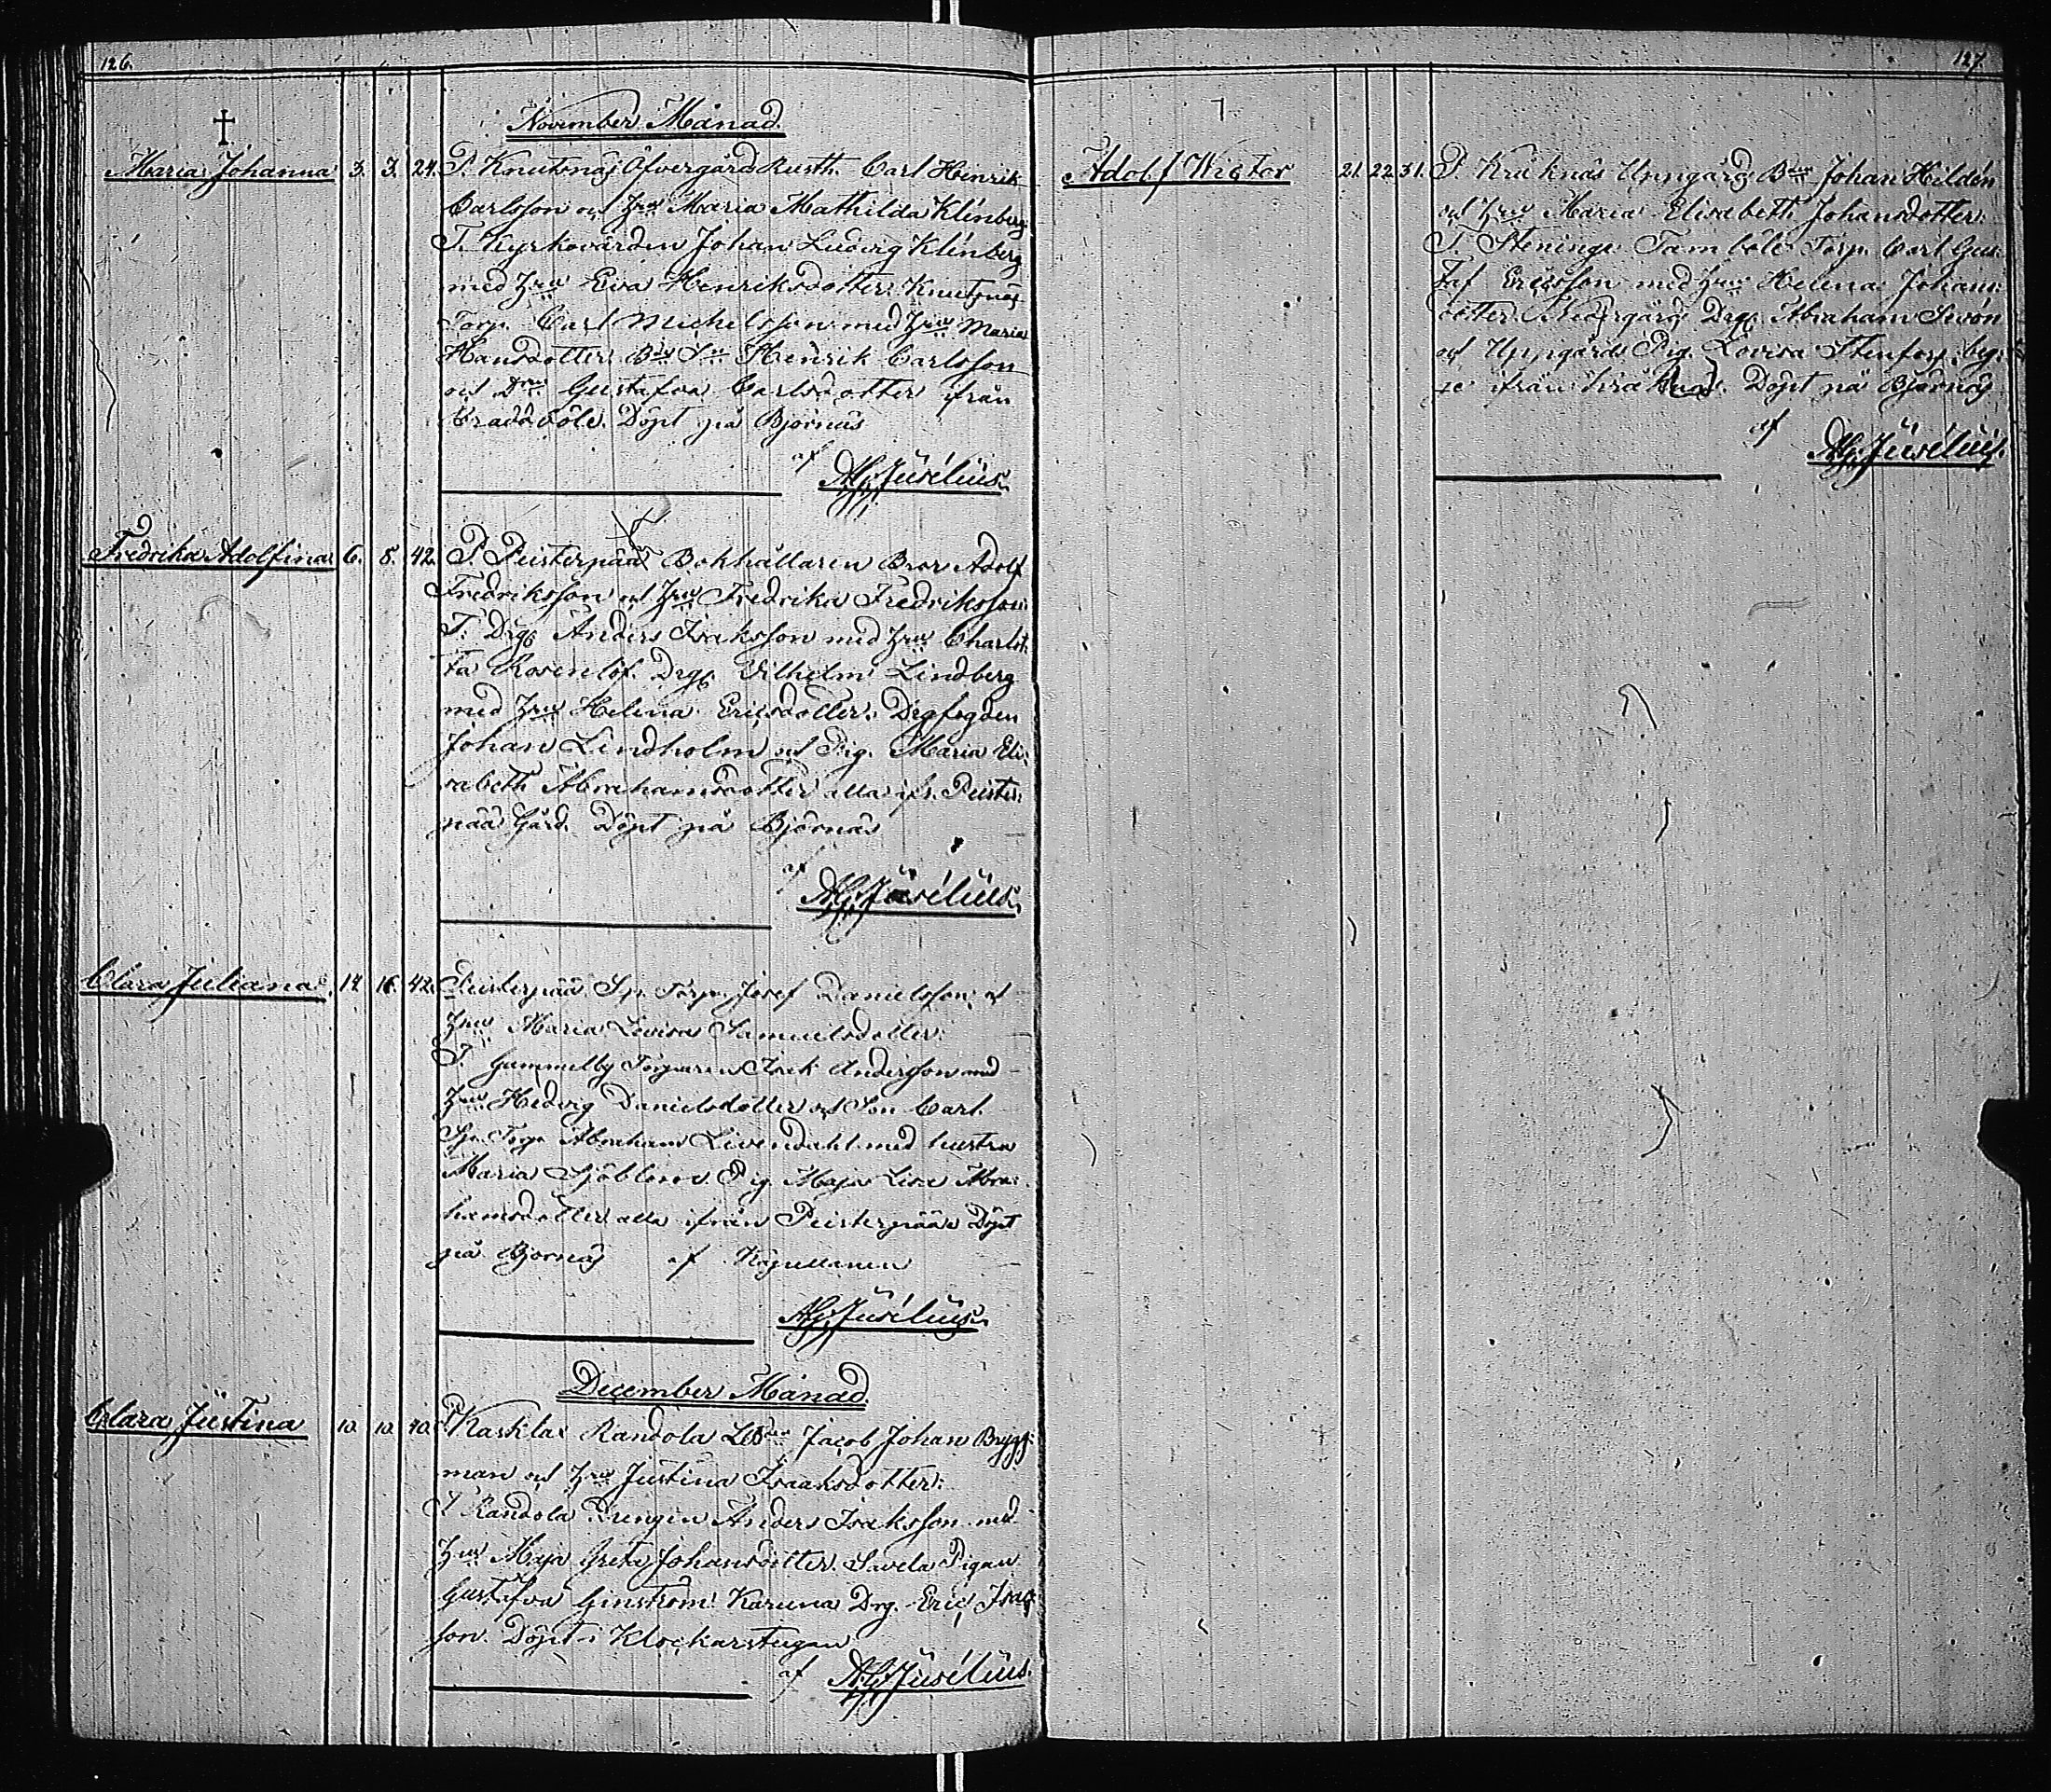 126.
November Månad.
Maria Johanna 3. 3. 24. P. Knutsnäs Öfvergård Rusth. Carl Heinrik
Carlsson och Hru Maria Mathilda Klinberg
T. Kyrkovärden Johan Ludvig Klinberg
med Hru Eva Henriksdotter. Knutsnäs
Torp. Carl Michelsson med Hru Maria
Hansdotter. Henrik Carlsson
och Gustafva Carlsdotter ifrån
Döpt på Björnäs
af
Fredrika Adolfina. 6. 8. 42. P. Peisterpää Bokhållaren Bror Adolf
Fredriksson och Hru Fredrika Fredriksson.
T. Drg. Anders Isaksson med Hru Charlot-
ta Rosenlöf. Drg. Vilhelm Lindberg
med Hru Helena Ericsdotter. Drgfogden
Johan Lindholm och Pig. Maria Eli-
sabeth Abrahamsdotter alla ifr. Peister-
pää Gård. Döpt på Björnäs
af
Clara Juliana. 14. 16. 42. Peisterpää Sp. Torp. Josef Danielsson och
Hru Maria Lovisa Samuelsdotter.
T. Gammelby Torparen Isak Andersson med
Hru Hedvig Danielsdotter och Son Carl.
Sp. Torp. Abraham Livendahl med hustru
Maria Sjöblom. Pig. Maja Lisa Abra-
hamsdotter alla ifrån Peisterpää Döpt
på Björnäs af Kapellanen
December Månad.
Clara Justina 10. 10. 40. P. Karklax Randola Jacob Johan Brygg-
man och Hru Justina Isaaksdotter.
T. Randola Drengen Anders Isaksson med
Hru Maja Greta Johansdotter. Savela Pigan
Gustafva Ginström. Karuna Drg. Eric Isacs-
son. Döpt i Klockarstugan
af
127.
Adolf Wictor 21. 22. 31. P. Kräknäs Uppgård Johan Hildén
och Hru Maria Elisabeth Johansdotter.
T. Steninge Tamböle Torp. Carl Gus-
taf Ericsson med Hru Helena Johans-
dotter. Nedergård Drg. Abraham Sirén
och Uppgårds Pig. Lovisa Stenfors. beg-
ge ifrån Kräknäs. Döpt på Björnäs
af